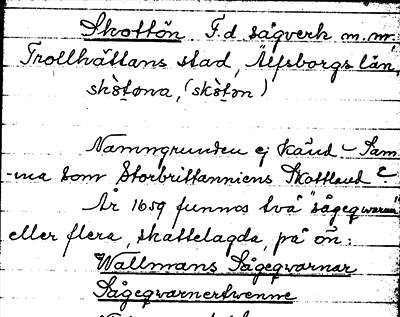 Skottön F d sågverk m.m.
Trollhättans stad, Älfsborgs län,
skò̀t̲ona, (skòt̲ən)
Namngrunden ej känd – Sam-
-ma som Storbrittanniens Skottland?
År 1659 funnos två "sågeqvarnar"
eller flera, skattelagda, på ön:
Wallmans Sågeqvarnar
Sågeqvarnertwenne